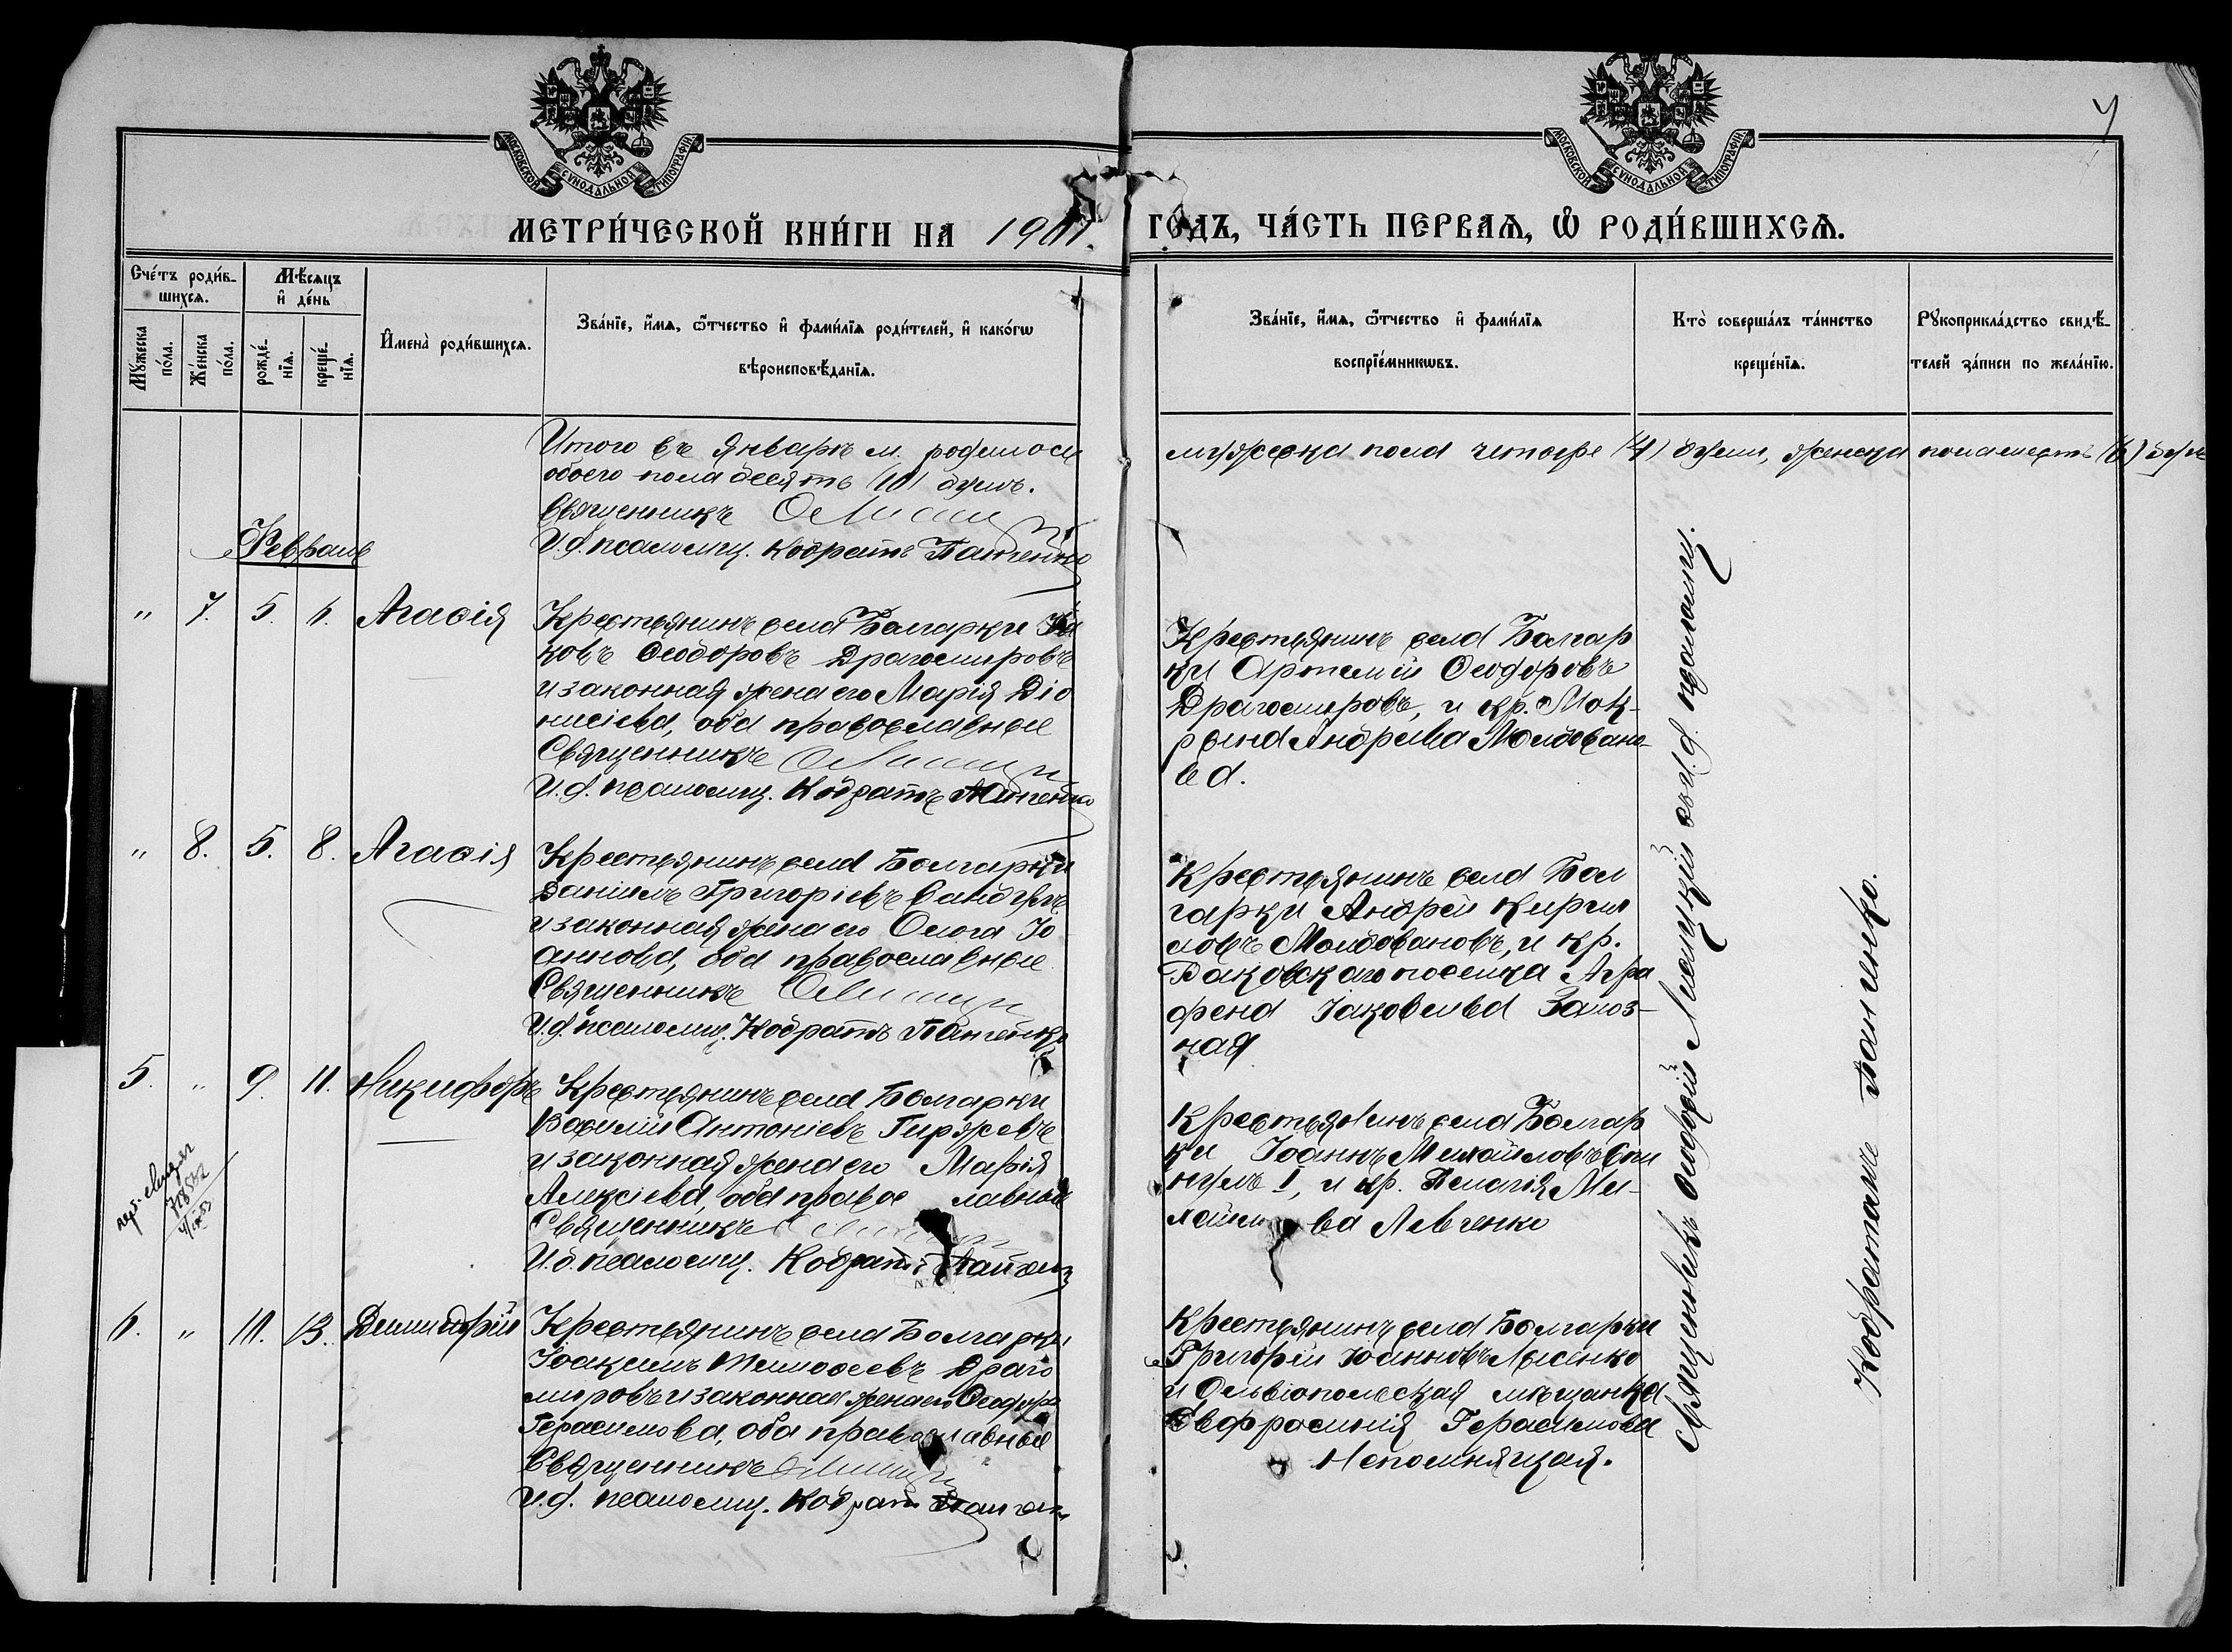 МОСКОВСКОЙ СѴНОДАЛЬНОЙ ТИПОГРАФІИ
МОСКОВСКОЙ СѴНОДАЛЬНОЙ ТИПОГРАФІИ
МЕТРИ́ЧЕСКОЙ КНИ́ГИ НА 1901. ГОДЪ, ЧА́СТЬ ПЕРВАѦ, Ѡ҆ РОДИ́ВШИХСѦ.
Сче́тъ роди́в-
шихсѧ.
Мѣ́сѧцъ
и҆ де́нь
Мꙋ́жеска
по́ла.
Же́нска
по́ла.
рожде́-
нїѧ.
креще́-
нїѧ.
И҆мена̀ роди́вшихсѧ.
Зва́нїе, и҆́мѧ, ѻ҆́тчество и҆ фами́лїѧ роди́телей, и҆ како́гѡ
вѣроисповѣ́данїѧ.
Зва́нїе, и҆́мѧ, ѻ҆́тчество и҆ фами́лїѧ
воспрїе́мникѡвъ.
Кто̀ соверша́лъ та́инство
креще́нїѧ.
Рꙋкоприкла́дство свидѣ́-
телей за́писи по жела́нїю.
Итого въ Январѣ м. родилось
обоего пола десять (10) душъ.
Священникъ
И.д. псаломщ. Кодратъ Панченко
мужеска пола четыре (4) души, женска пола шесть (6) душъ
Февраль
" 7. 5. 6. Агафія
Крестьянинъ села Болгарки Іа
ковъ Ѳеодоровъ Драгомировъ
и законная жена его Марія Діо
нисіева, оба православные
Священникъ
И.д. псаломщ. Кодратъ Панченко
Крестьянинъ села Болгар
ки Артемій Ѳеодоровъ
Драгомировъ, и кр. Мок-
рина Андреева Молдовано-
ва.
" 8. 5. 8. Агафія
Крестьянинъ села Болгарки
Даніилъ Григоріевъ
и законная жена его Ольга Іо
аннова, оба православные
Священникъ
И.д. псаломщ. Кодратъ Панченко
Крестьянинъ села Бол
гарки Андрей Кирил
ловъ Молдовановъ, и кр.
поселка Агра
фена Іаковлева
ная
5. " 9. 11. Никифоръ
Крестьянинъ села Болгарки
Василій Антоніевъ Гиржевъ
и законная жена его Марія
Алексіева, оба православные
Священникъ
И.д. псаломщ. Кодратъ Панченко
Крестьянинъ села Болгар
ки Іоаннъ Михайловъ
I, и кр. Пелагія Ми-
хайлова Левченко
6. " 11. 13. Димитрій
Крестьянинъ села Болгарки
Іоакимъ Тимофеевъ Драго
мировъ и законная жена его Ѳеодора
Герасимова, оба православные
Священникъ
И.д. псаломщ. Кодратъ Панченко
Крестьянинъ села Болгарки
Григорій Іоанновъ Лысенко
и Ольвіопольская мѣщанка
Евфросинія Герасимова
Непомнящая.
Священникъ Ѳеофій съ и.д. псаломщ.
Кодратомъ Панченко.